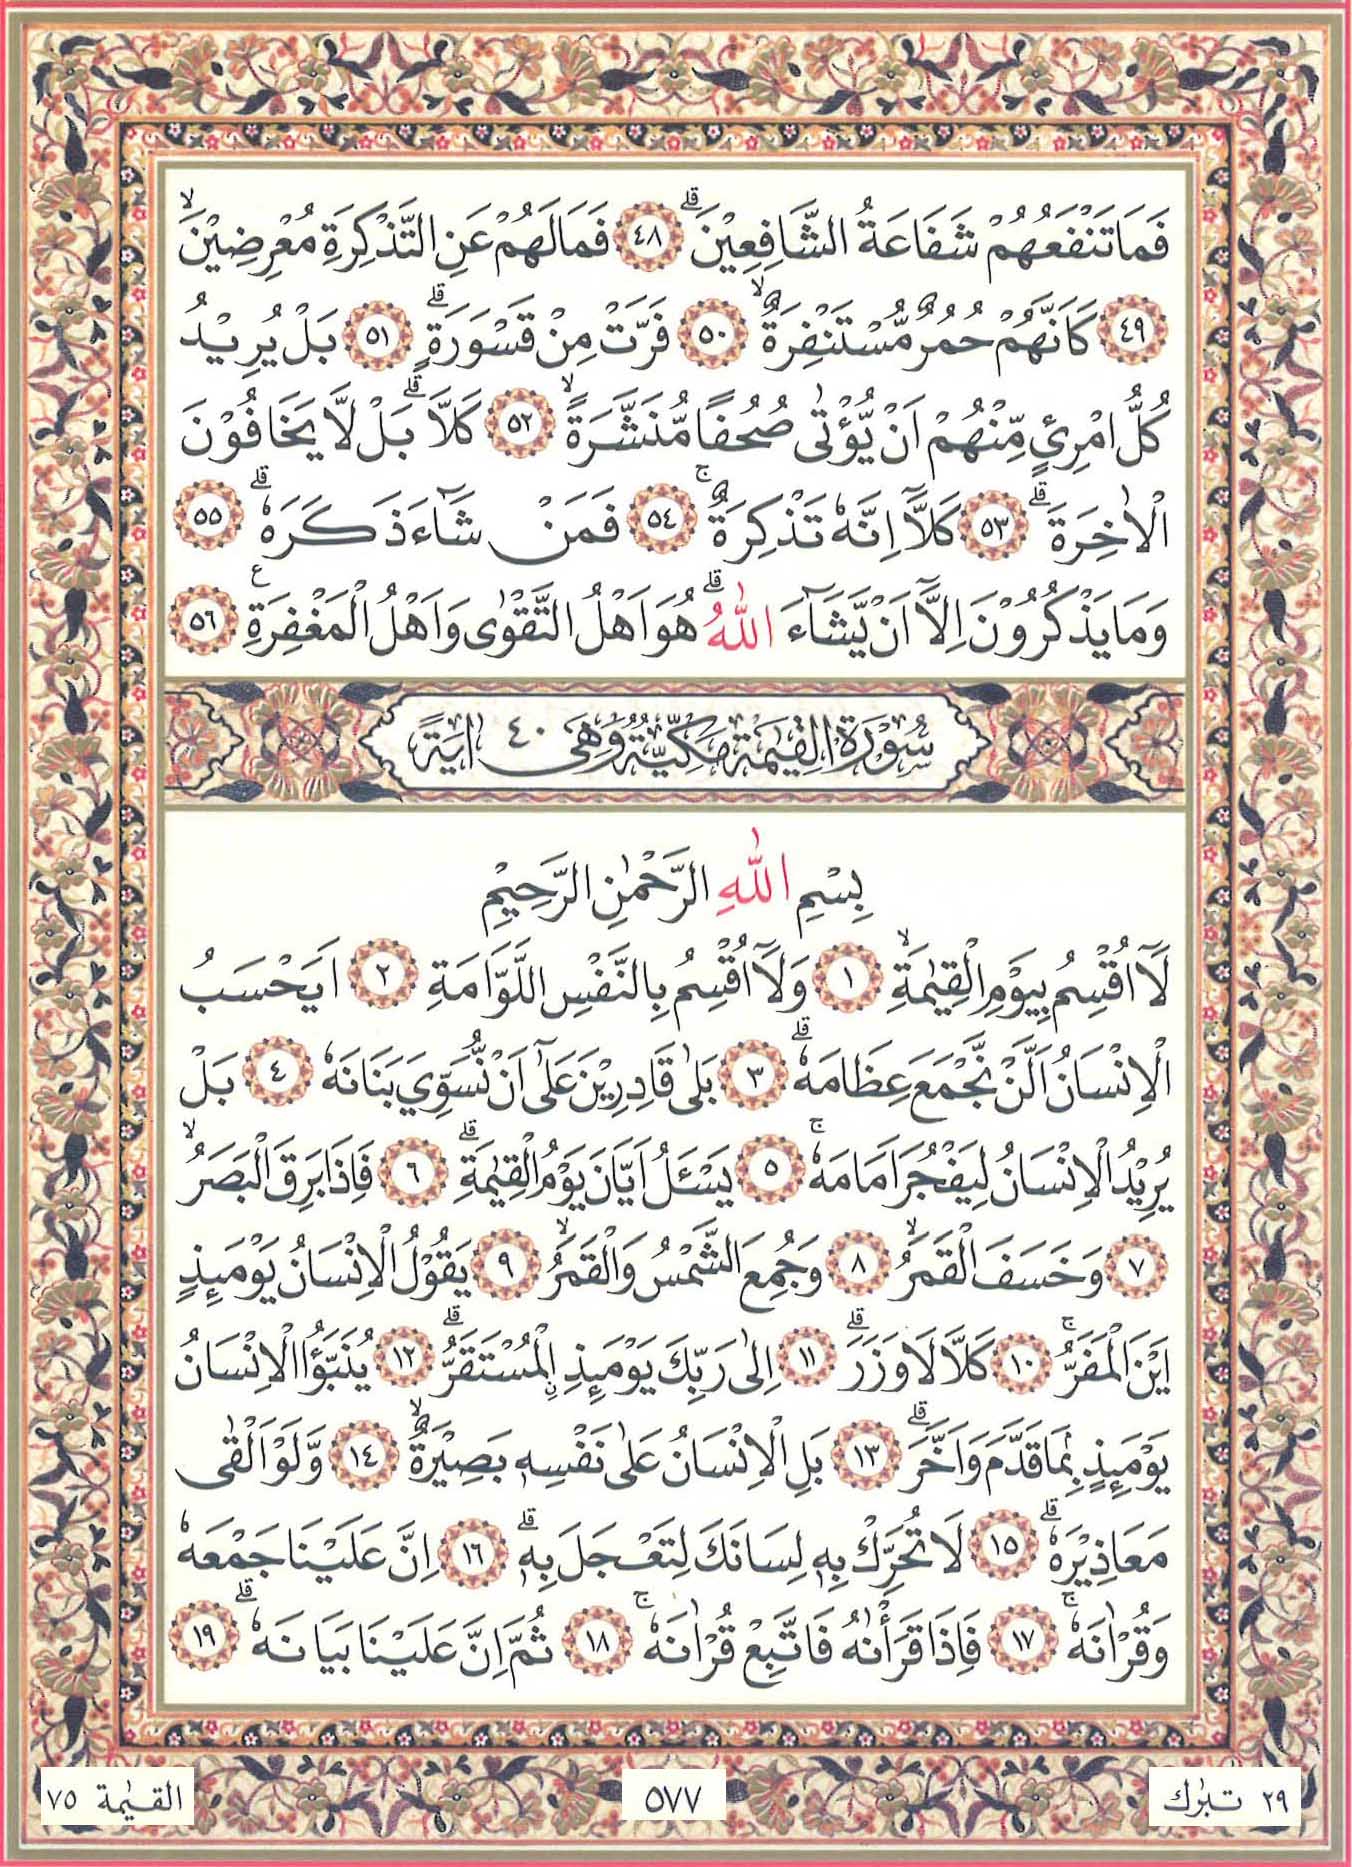 فَمَا تَنْفَعُهُمْ شَفَاعَةُ الشَّافِعِيْنَ ۗ ﴿٤٨﴾ فَمَا لَهُمْ عَنِ التَّذْكِرَةِ مُعْرِضِيْنَ ۙ
﴿٤٩﴾ كَاَنَّهُمْ حُمُرٌ مُّسْتَنْفِرَةٌ ۙ ﴿٥٠﴾ فَرَّتْ مِنْ قَسْوَرَةٍ ۗ ﴿٥١﴾ بَلْ يُرِيْدُ
كُلُّ امْرِئٍ مِّنْهُمْ اَنْ يُّؤْتٰى صُحُفًا مُّنَشَّرَةً ۙ ﴿٥٢﴾ كَلَّا ۗ بَلْ لَّا يَخَافُوْنَ
الْاٰخِرَةَ ۗ ﴿٥٣﴾ كَلَّآ اِنَّهٗ تَذْكِرَةٌ ۚ ﴿٥٤﴾ فَمَنْ شَآءَ ذَكَرَهٗ ۗ ﴿٥٥﴾
وَمَا يَذْكُرُوْنَ اِلَّآ اَنْ يَّشَآءَ اللّٰهُ ۗ هُوَ اَهْلُ التَّقْوٰى وَاَهْلُ الْمَغْفِرَةِ ع ﴿٥٦﴾
سُورَةُ الْقِيٰمَةِ مَكِّيَّةٌ وَهِىَ ٤٠ اٰيَةً
بِسْمِ اللّٰهِ الرَّحْمٰنِ الرَّحِيْمِ
لَآ اُقْسِمُ بِيَوْمِ الْقِيٰمَةِ ۙ ﴿١﴾ وَلَآ اُقْسِمُ بِالنَّفْسِ اللَّوَّامَةِ ﴿٢﴾ اَيَحْسَبُ
الْاِنْسَانُ اَلَّنْ نَّجْمَعَ عِظَامَهٗ ۗ ﴿٣﴾ بَلٰى قَادِرِيْنَ عَلٰٓى اَنْ نُّسَوِّيَ بَنَانَهٗ ﴿٤﴾ بَلْ
يُرِيْدُ الْاِنْسَانُ لِيَفْجُرَ اَمَامَهٗ ۚ ﴿٥﴾ يَسْـَٔلُ اَيَّانَ يَوْمُ الْقِيٰمَةِ ۗ ﴿٦﴾ فَاِذَا بَرِقَ الْبَصَرُ ۙ
﴿٧﴾ وَخَسَفَ الْقَمَرُ ۙ ﴿٨﴾ وَجُمِعَ الشَّمْسُ وَالْقَمَرُ ۙ ﴿٩﴾ يَقُوْلُ الْاِنْسَانُ يَوْمَئِذٍ
اَيْنَ الْمَفَرُّ ۚ ﴿١٠﴾ كَلَّا لَا وَزَرَ ۗ ﴿١١﴾ اِلٰى رَبِّكَ يَوْمَئِذِ ِۨالْمُسْتَقَرُّ ۗ ﴿١٢﴾ يُنَبَّؤُا الْاِنْسَانُ
يَوْمَئِذٍ بِمَا قَدَّمَ وَاَخَّرَ ۗ ﴿١٣﴾ بَلِ الْاِنْسَانُ عَلٰى نَفْسِهٖ بَصِيْرَةٌ ۙ ﴿١٤﴾ وَّلَوْ اَلْقٰى
مَعَاذِيْرَهٗ ۗ ﴿١٥﴾ لَا تُحَرِّكْ بِهٖ لِسَانَكَ لِتَعْجَلَ بِهٖ ۗ ﴿١٦﴾ اِنَّ عَلَيْنَا جَمْعَهٗ
وَقُرْاٰنَهٗ ۚ ﴿١٧﴾ فَاِذَا قَرَأْنٰهُ فَاتَّبِعْ قُرْاٰنَهٗ ۚ ﴿١٨﴾ ثُمَّ اِنَّ عَلَيْنَا بَيَانَهٗ ۗ ﴿١٩﴾
٢٩ تبٰرك
٥٧٧
القيٰمة ٧٥